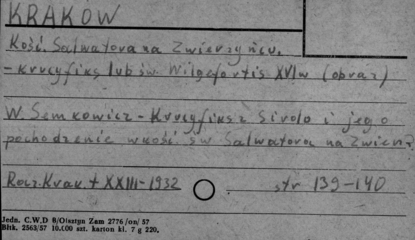 KRAKÓW
Kość. Salwatora na Zwierzyńcu.
- krucyfiks lub św. Wilgefortis XVI w (obraz)
W. Semkowicz - Krucyfiks z Sirolo i jego
pochodzenie w kość. św Salwatora na Zwierz.
Rocz. Krak. t XXIII - 1932 str 139-140
Jedn. C.W.D 8/Olsztyn Zam 2776/on/57
Bltk. 2563/57 10.000 szt. karton kl. 7 g 220.